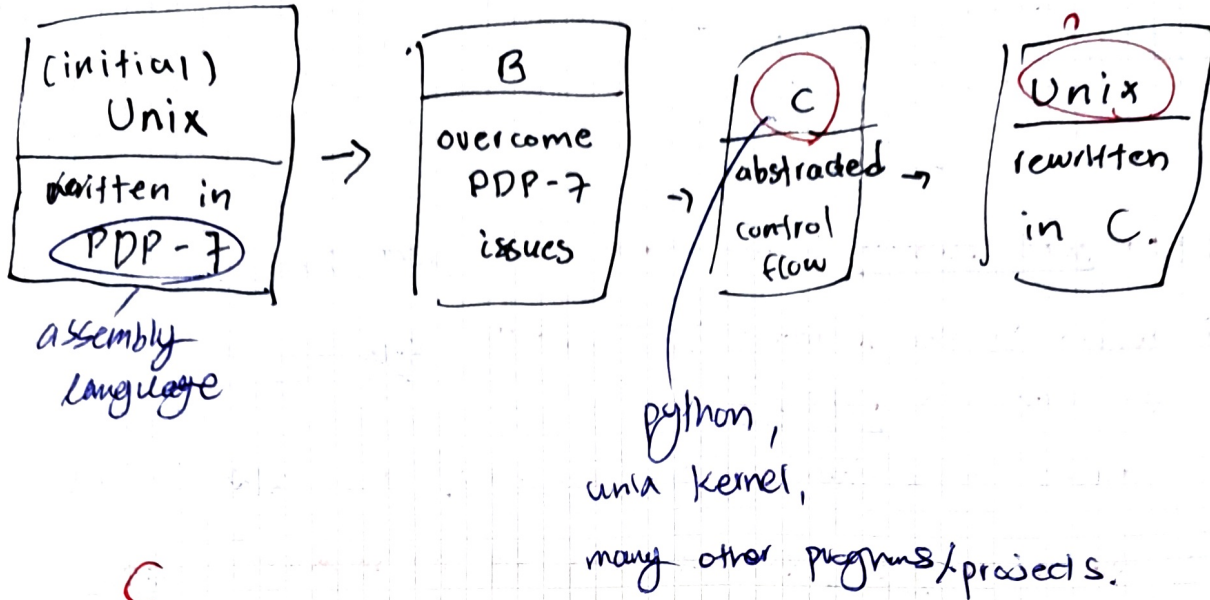 (initial)
Unix
written in
PDP-7
assembly
language
→
B
overcome
PDP-7
issues
→
C
abstracted
control
flow
→
Unix
rewritten
in C.
python,
kernel,
many other programs/projects.